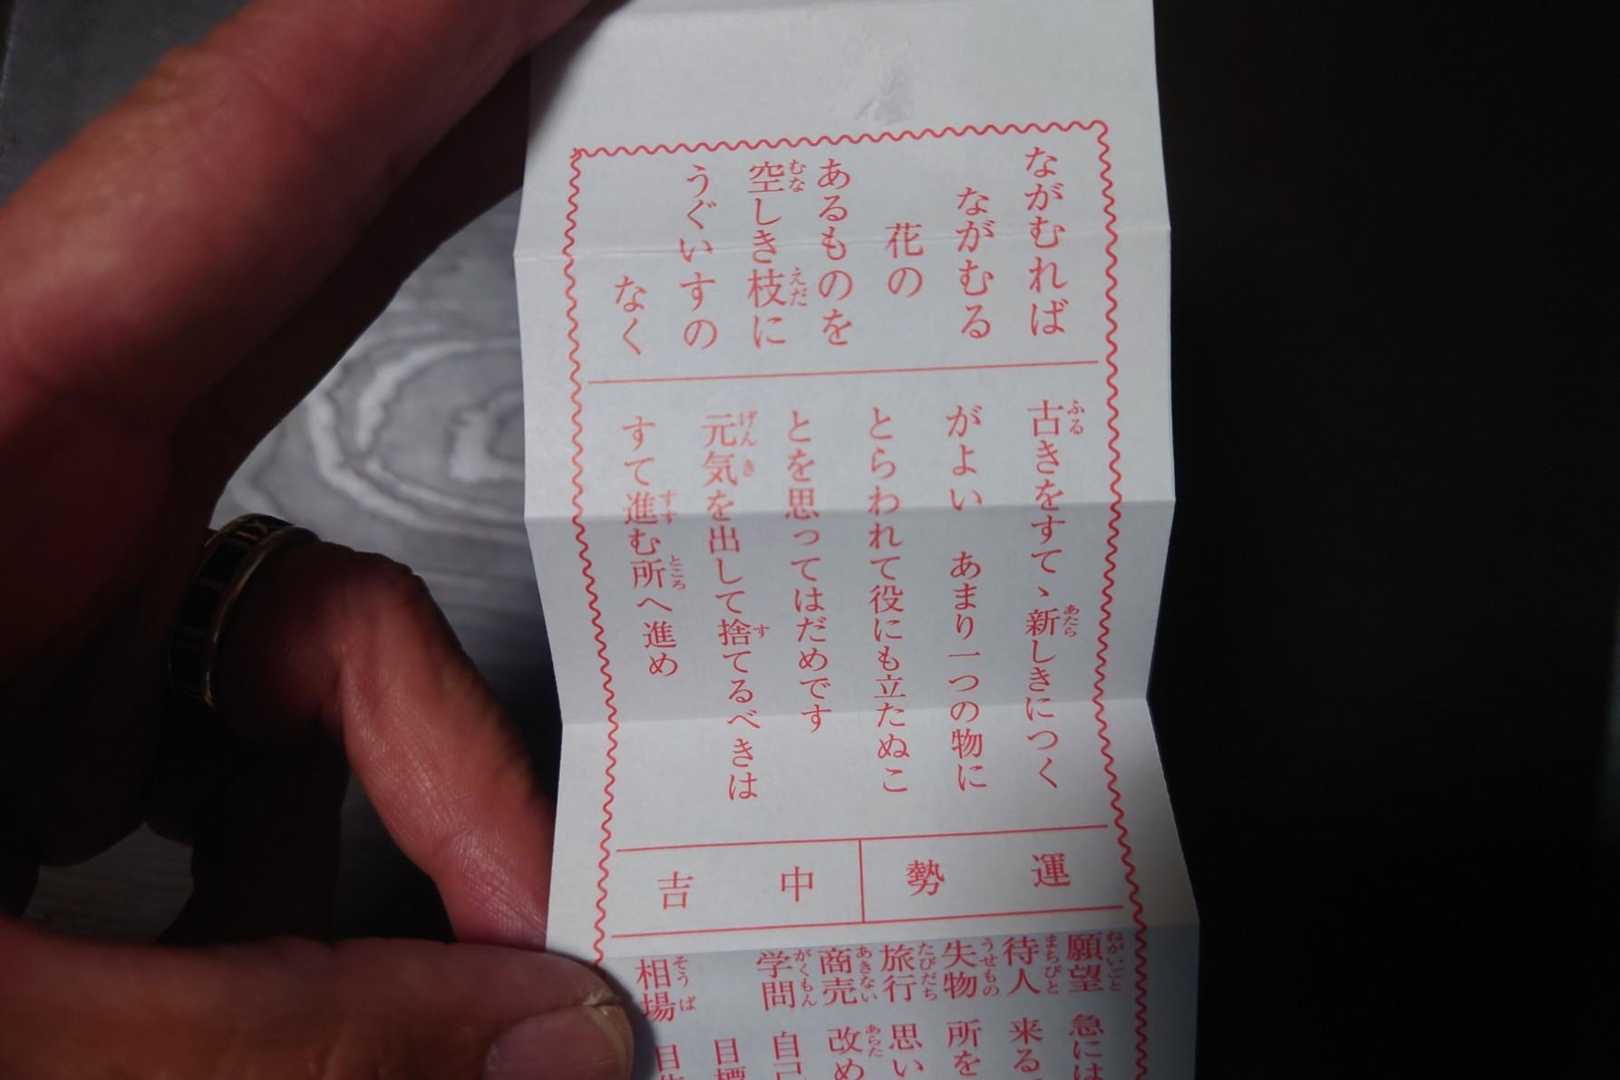 ながむれば
ながむる
花の
あるものを
空しき枝に
うぐいすの
なく
古きをすてゝ新しきにつく
がよい　あまり一つの物に
とらわれて役にも立たぬこ
とを思ってはだめです
元気を出して捨てるべきは
すて進む所へ進め
運勢　中吉
願望　急には
待人　来る
失物　所を
旅行　思い
商売　改め
学問　自己
目標
相場